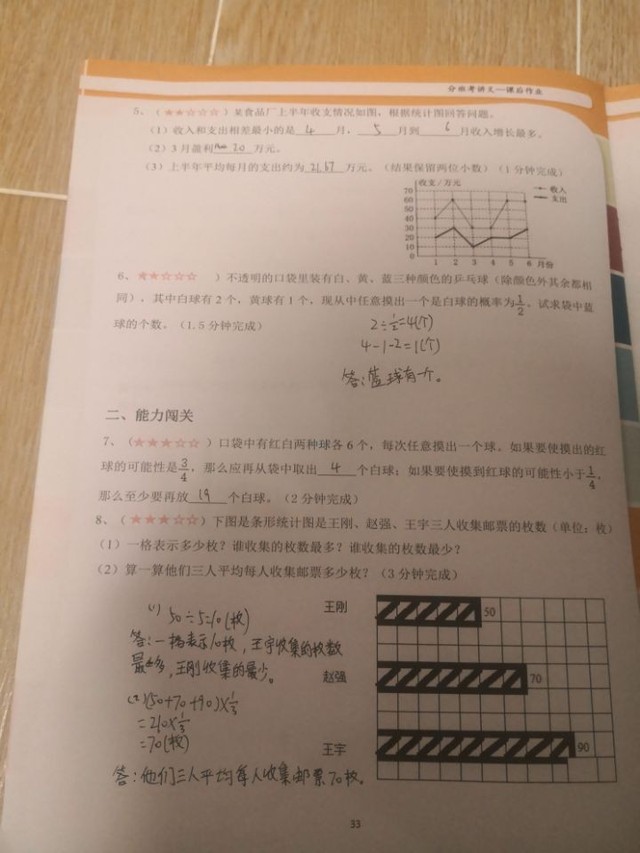 分班考讲义—课后作业
5、（★★☆☆☆）某食品厂上半年收支情况如图，根据统计图回答问题。
（1）收入和支出相差最小的是 4 月， 5 月到 6 月收入增长最多。
（2）3月盈利 20 万元。
（3）上半年平均每月的支出约为 21.67 万元。（结果保留两位小数）（1分钟完成）
收支/万元
收入
支出
70
60
50
40
30
20
10
0
1 2 3 4 5 6 月份
6、★★☆☆☆ ）不透明的口袋里装有白、黄、蓝三种颜色的乒乓球（除颜色外其余都相
同），其中白球有2个，黄球有1个，现从中任意摸出一个是白球的概率为1/2，试求袋中蓝
球的个数。（1.5分钟完成）
2÷1/2=4(个)
4-1-2=1(个)
答：蓝球有一个。
二、能力闯关
7、（★★★☆☆）口袋中有红白两种球各6个，每次任意摸出一个球。如果要使摸出的红
球的可能性是3/4，那么应再从袋中取出 4 个白球；如果要使摸到红球的可能性小于1/4，
那么至少要再放 19 个白球。（2分钟完成）
8、（★★★☆☆）下图是条形统计图是王刚、赵强、王宇三人收集邮票的枚数（单位：枚）
（1）一格表示多少枚？谁收集的枚数最多？谁收集的枚数最少？
（2）算一算他们三人平均每人收集邮票多少枚？（3分钟完成）
(1) 50÷5=10(枚)
答：一格表示10枚，王宇收集的枚数
最多，王刚收集的最少。
(2)(50+70+90)×1/3
=210×1/3
=70(枚)
答：他们三人平均每人收集邮票70枚。
王刚 50
赵强 70
王宇 90
33